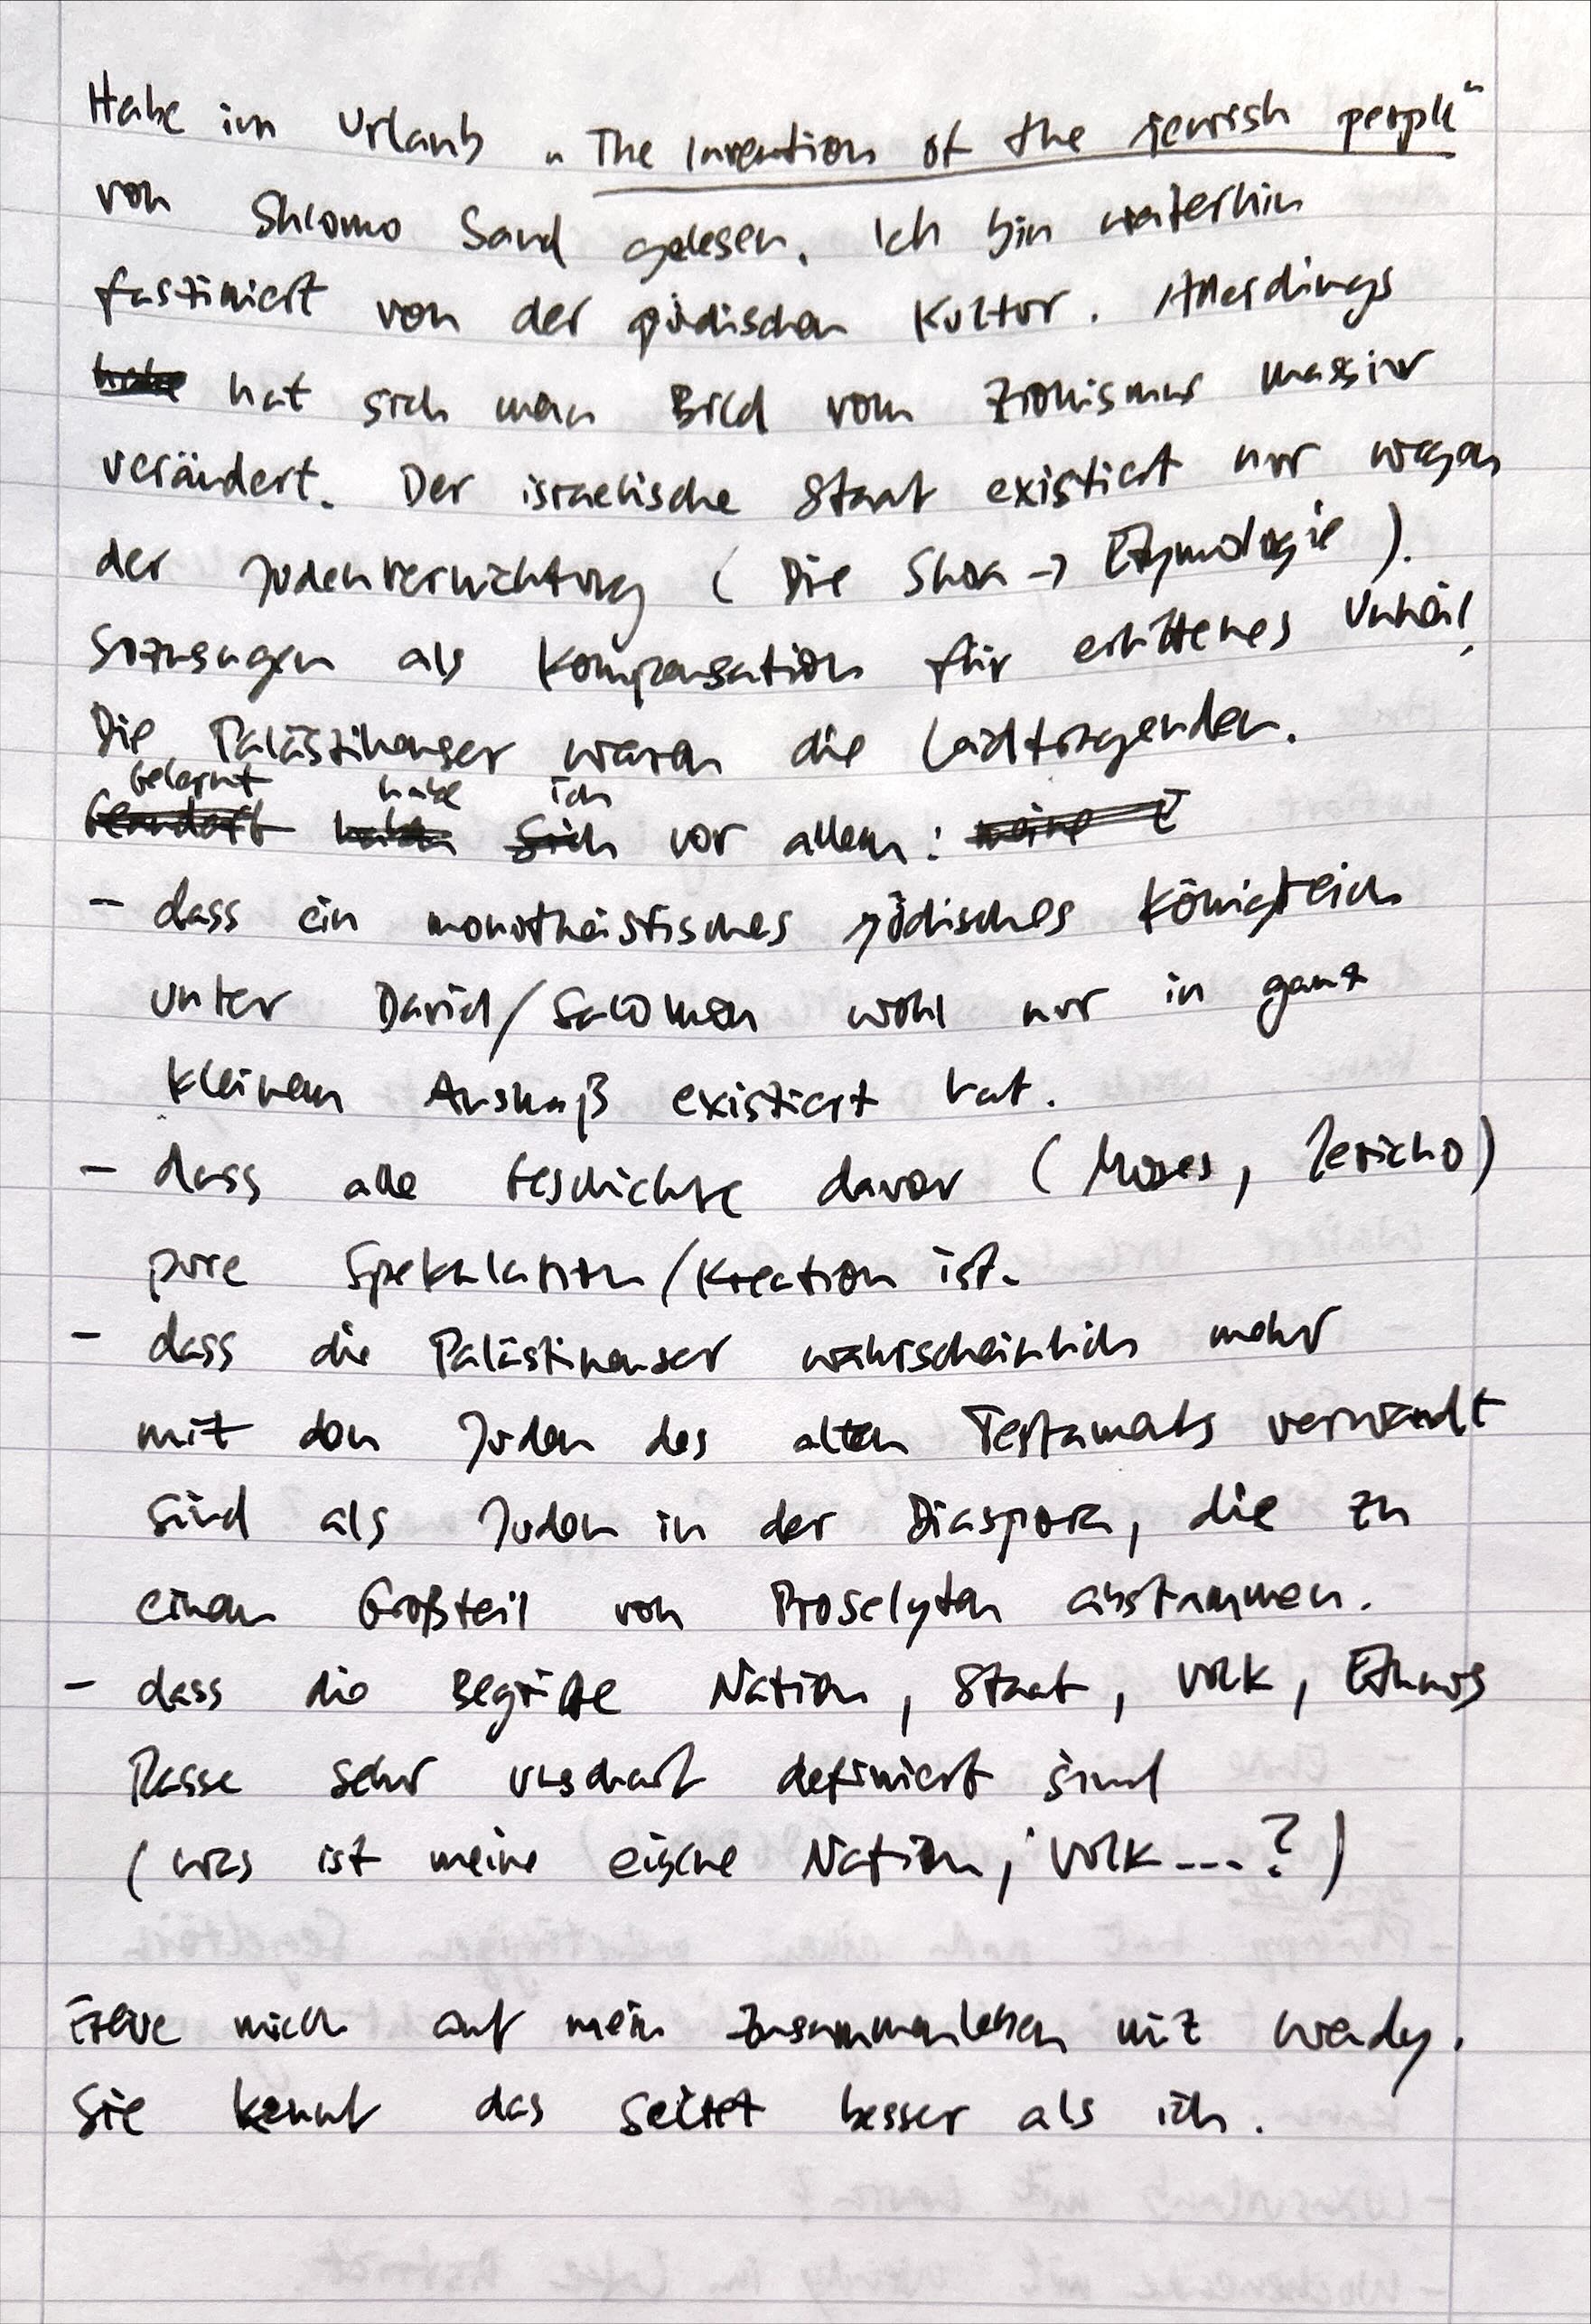 Habe im Urlaub „The Invention of the jewish people“
von Shlomo Sand gelesen. Ich bin weiterhin
fasziniert von der jüdischen Kultur. Allerdings
hat sich mein Bild vom Zionismus massiv
verändert. Der israelische Staat existiert nur wegen
der Judenvernichtung (Die Shoa → Etymologie).
Sozusagen als Kompensation für erlittenes Unheil,
Die Palästinenser waren die Leidtragenden.
Gelernt habe ich vor allem:
- dass ein monotheistisches jüdisches Königreich
unter David/Salomon wohl nur in ganz
kleinem Ausmaß existiert hat.
- dass alle Geschichte davor (Moses, Jericho)
pure Spekulation/Kreation ist.
- dass die Palästinenser wahrscheinlich mehr
mit den Juden des alten Testaments verwandt
sind als Juden in der Diaspora, die zu
einem Großteil von Proselyten abstammen.
- dass die Begriffe Nation, Staat, Volk, Ethnos
Rasse sehr unscharf definiert sind
(was ist meine eigene Nation, Volk---?)
Freue mich auf mein Zusammenleben mit Wendy.
Sie kennt das besser als ich.